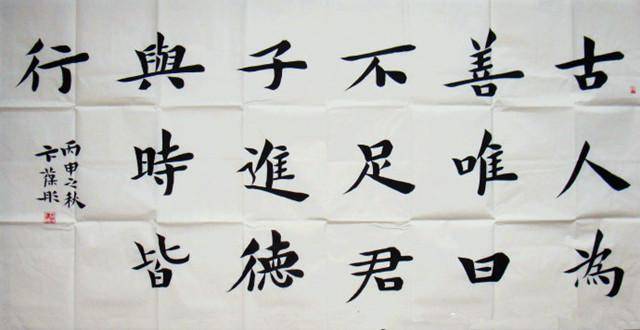 古人為
善唯日
不足君
子進德
與時皆
行
丙申之秋
卞葆彤